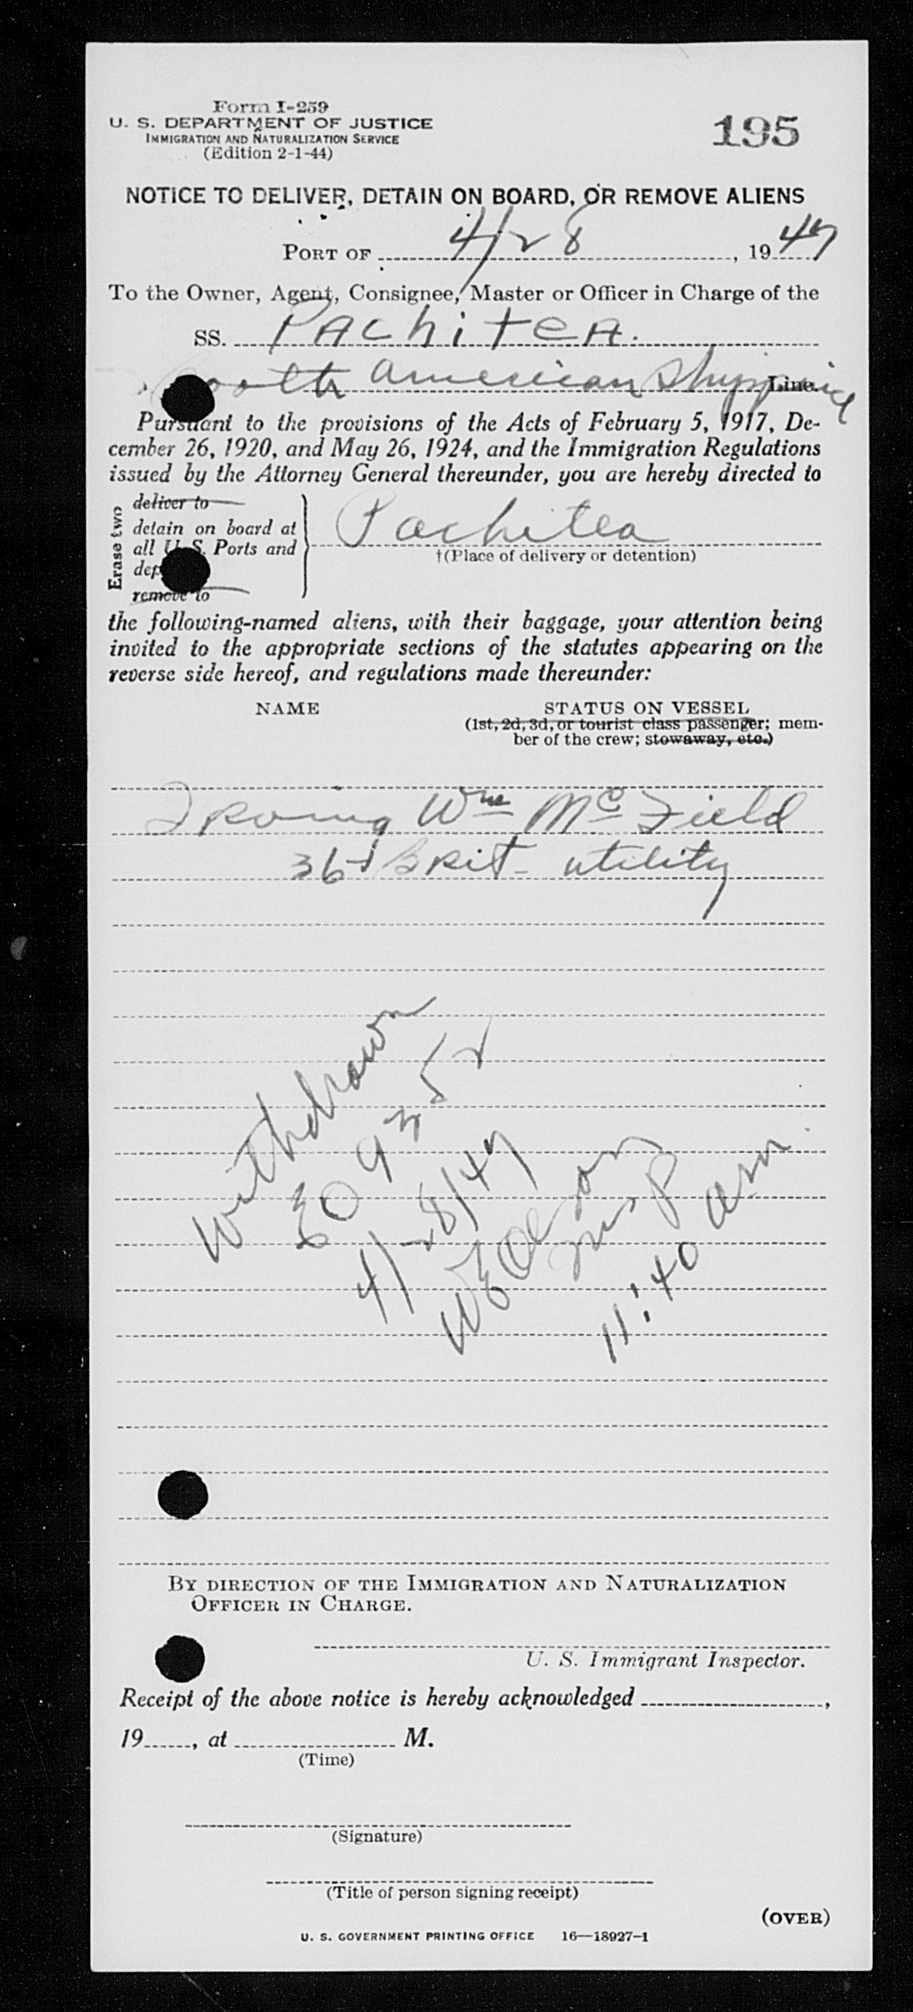 Form I-259
U. S. DEPARTMENT OF JUSTICE
IMMIGRATION AND NATURALIZATION SERVICE
(Edition 2-1-44)
195
NOTICE TO DELIVER, DETAIN ON BOARD, OR REMOVE ALIENS
PORT OF 4/28, 1947
To the Owner, Agent, Consignee, Master or Officer in Charge of the
SS. PACHITEA.
South American Shipping Line.
Pursuant to the provisions of the Acts of February 5, 1917, De-
cember 26, 1920, and May 26, 1924, and the Immigration Regulations
issued by the Attorney General thereunder, you are hereby directed to
Erase two
deliver to
detain on board at
all U. S. Ports and
dep
remove to
Pachitea
†(Place of delivery or detention)
the following-named aliens, with their baggage, your attention being
invited to the appropriate sections of the statutes appearing on the
reverse side hereof, and regulations made thereunder:
NAME
STATUS ON VESSEL
(1st, 2d, 3d, or tourist class passenger; mem-
ber of the crew; stowaway, etc.)
Irving Wm McField
36 Brit - utility
Withdrawn
4/28/47
Insp
11:40 am
BY DIRECTION OF THE IMMIGRATION AND NATURALIZATION
OFFICER IN CHARGE.
U. S. Immigrant Inspector.
Receipt of the above notice is hereby acknowledged ,
19 , at M.
(Time)
(Signature)
(Title of person signing receipt)
(OVER)
U. S. GOVERNMENT PRINTING OFFICE 16—18927-1